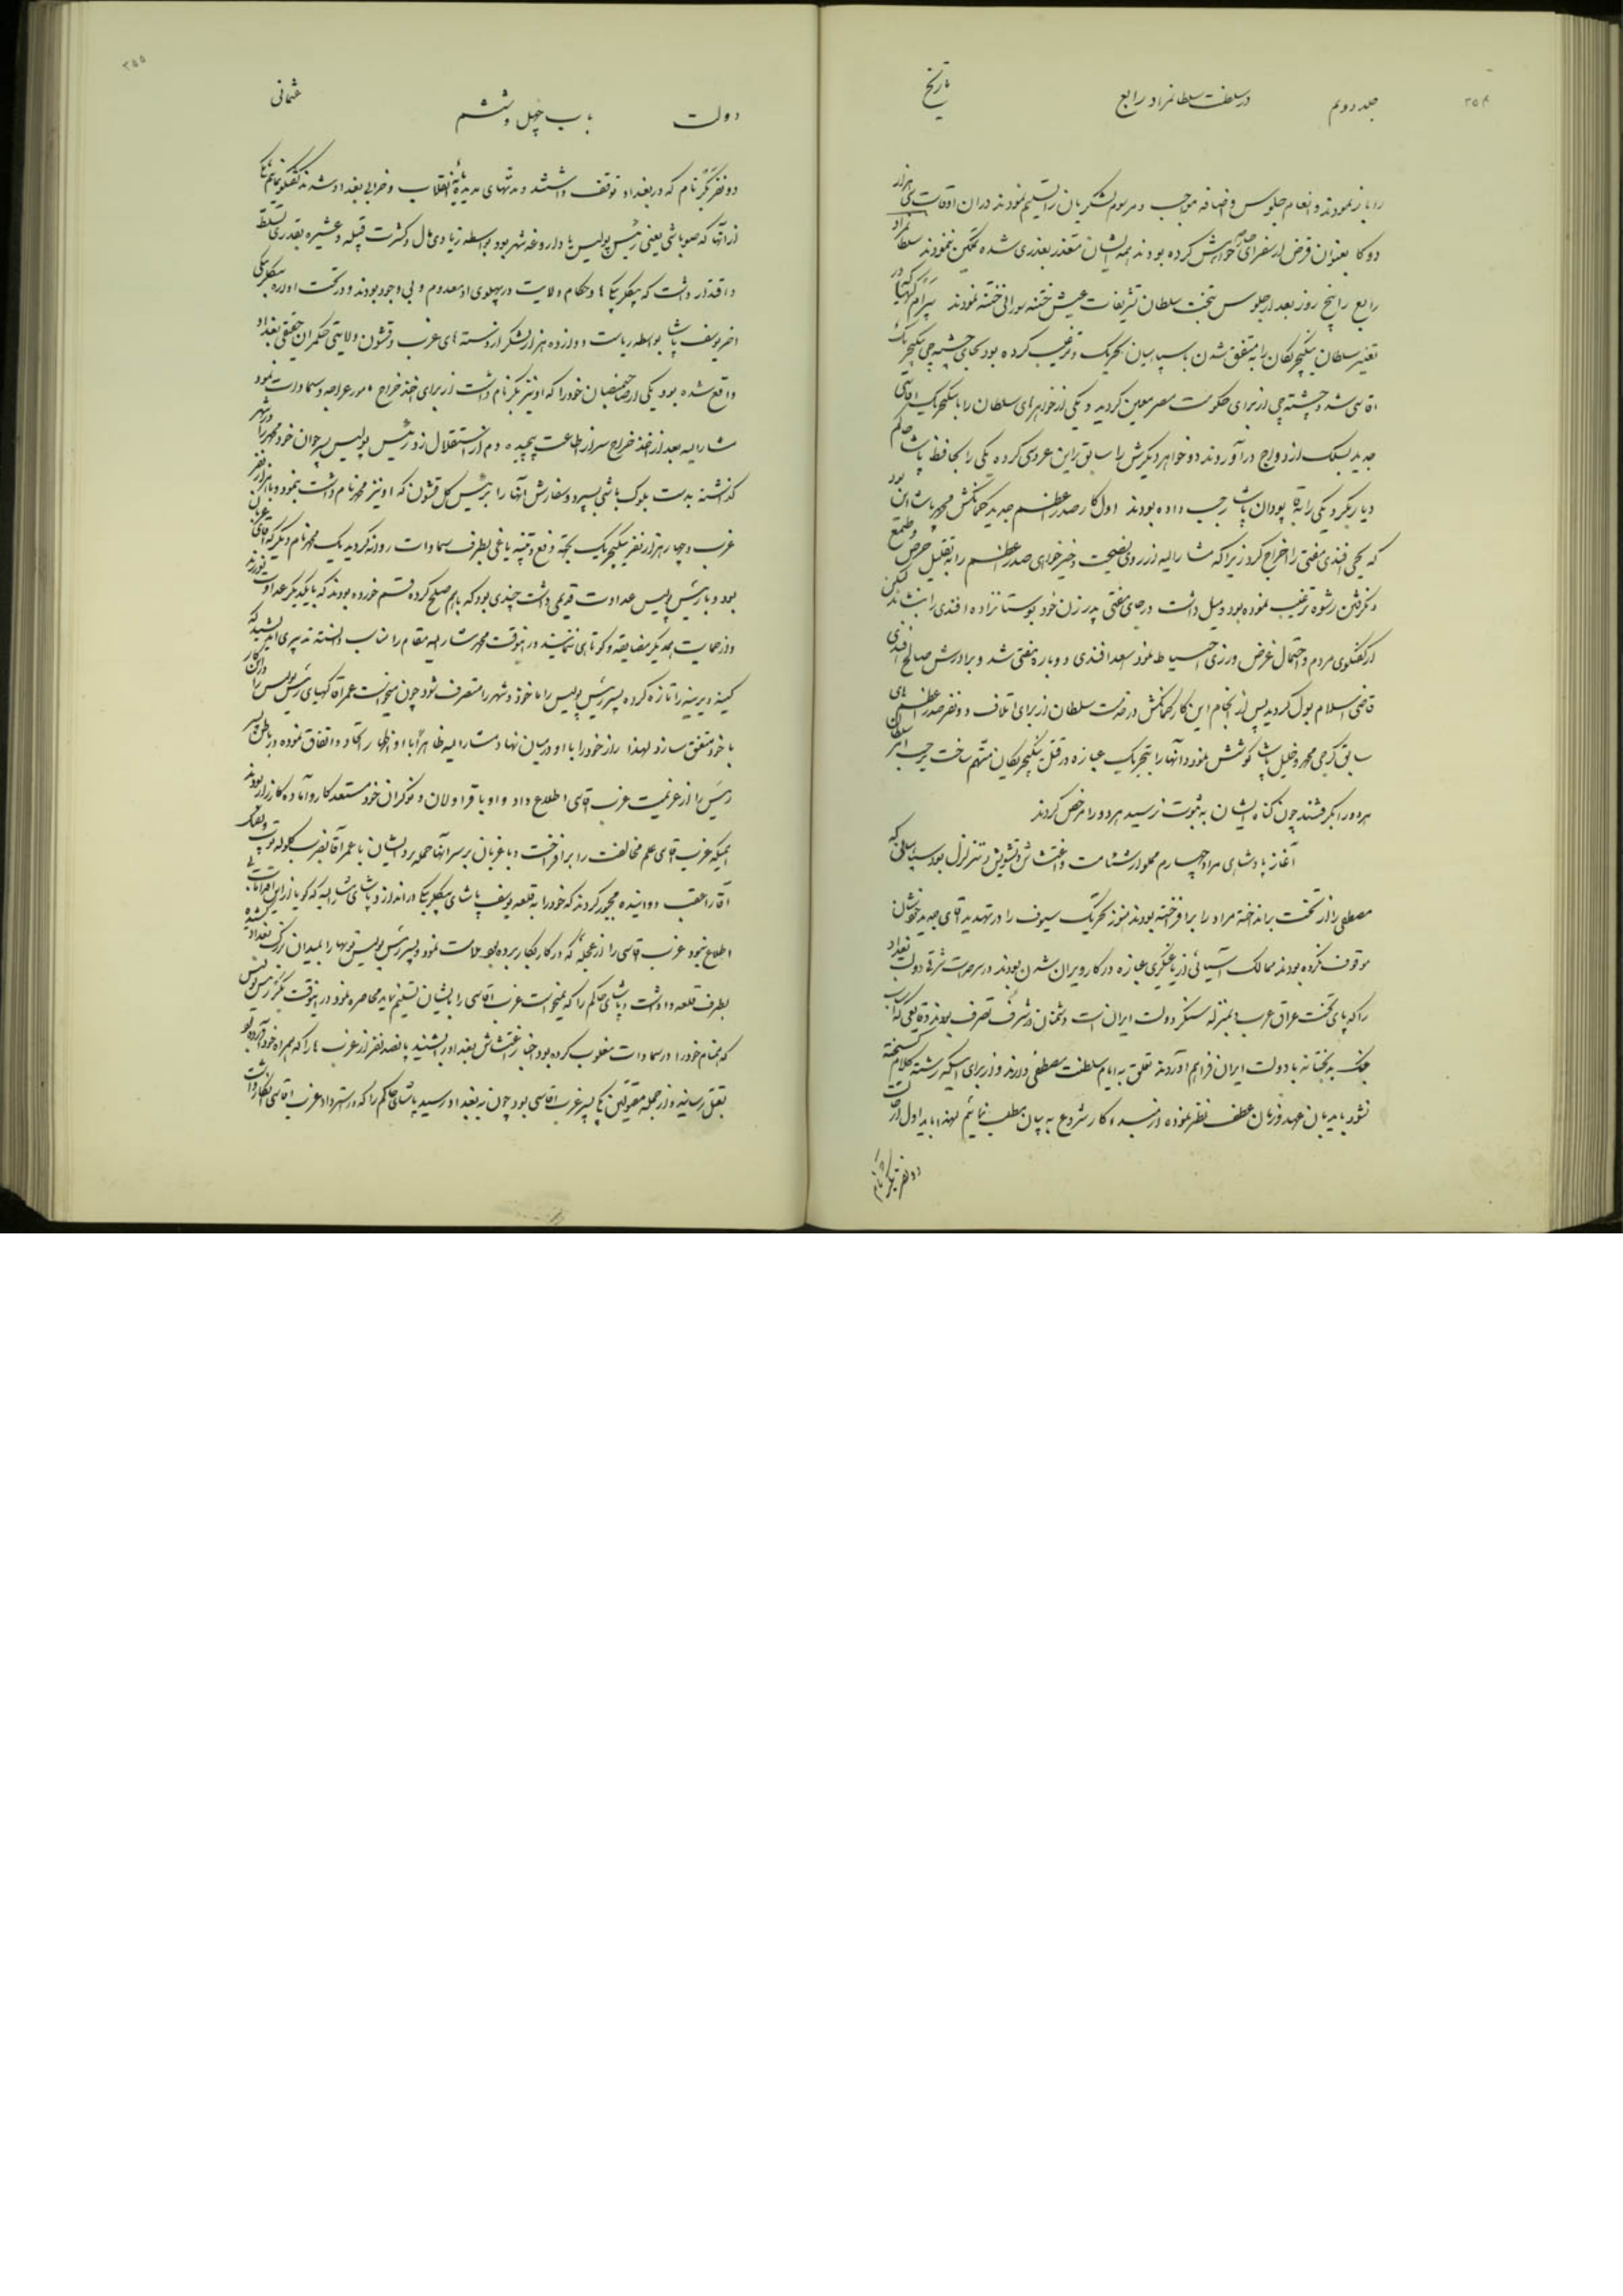 ۳۵۴
جلد دویم
در سلطنت سلطانمراد رابع
تاریخ
را باز نمودند و انعام جلوس و اضافه مواجب و مرسوم لشکریان را تسلیم نمودند در آن اوقات سی هزار
دوکا بعنوان قرض از سفرای خواهش کرده بودند همه ایشان متعذر بعذری شده تمکین ننمودند سلطانمراد
رابع را پنج روز بعد از جلوس بتخت سلطان تشریفات عیش ختنه سورانی ختنه نمودند بیرام کهیا که در
تغییر سلطان ینکیچریکان را به متفق شدن با سپاهیان تحریک و ترغیب کرده بود بجای چشتمه چی ینکیچریک
اقاسی شد و چشته چی از برای حکومت مصر معین کردید و یکی از خواهرهای سلطان را با ینکیچریک اقاسی
جدید بسلک ازدواج در آوردند دو خواهر دیکرش را سابق براین عروسی کرده یکی را بحافظ پاشا حاکم
دیاربکر و یکی را به قپودان پاشا رجب داده بودند اول کار صدر اعظم جدید کمانکش محمد پاشا این بود
که یحیی افندی مفتی را اخراج کرد زیرا که مشارالیه از روی نصیحت و خیرخواهی صدر اعظم را به تقلیل حرص و طمع
و نکرفتن رشوه ترغیب نموده بود و میل داشت در جای مفتی پدر زن خود بوستانزاده افندی را بنشاند لکن
از کفتکوی مردم و احتمال غرض ورزی احتیاط نمود سعد افندی دوباره مفتی شد و برادرش صالح افندی
قاضی اسلامبول کردید پس از انجام این کار کمانکش در خدمت سلطان از برای اتلاف دو نفر صدر اعظم های
سابق کرجی محمد و خلیل پاشا کوشش نمود و آنها را بتحریک عبازه در قتل ینکیچریکان متهم ساخت برحسب امر سلطان
هر دو را بکرفتند چون کناه ایشان به ثبوت نرسید هر دو را مرخص کردند
آغاز پادشاهی مراد چهارم مملو از شئامت و اغتشاش و تشویش و تزلزل بود سپاهیانی که
مصطفی را از تخت برانداخته مراد را برافراخته بودند هنوز تحریک سیوف را در تهدید آقای جدید خودشان
موقوف نکرده بودند ممالک آسیائی از یاغیکری عبازه در کار ویران شدن بودند در سرحدات شرقی دولت بغداد
را که پای تخت عراق عرب و بمنزله سنکر دولت ایران است دشمنان در شرف تصرف بودند وقایعی که اسباب
جنک بدبختانه با دولت ایران فراهم آوردند تعلق به ایام سلطنت مصطفی دارند و از برای اینکه رشته کلام کسیخته
نشود باید بان عهد و زمان عطف نظر نموده از مبدء کار شروع به بیان مطلب نمائیم لهذا باید اول از
دو نفر بکر نام
۳۵۵
دولت
باب چهل و ششم
عثمانی
دو نفر بکر نام که در بغداد توقف داشتند و مدتهای مدید مایه انقلاب و خرابی بغداد شدند کفتکو نمائیم یکی
از آنها که صوباشی یعنی رئیس پولیس یا داروغه شهر بود بواسطه زیادی مال و کثرت قبیله و عشیره بقدری تسلط
و اقتدار داشت که بیکلربیکیها و حکام ولایت در پهلوی او معدوم و بی وجود بودند و در تحت اداره بیکلربیکی
اخر یوسف پاشا بواسطه ریاست دوازده هزار لشکر از دسته های عرب و قشون ولایتی حکمران حقیقی بغداد
واقع شده بود یکی از صاحبمنصبان خود را که او نیز بکر نام داشت از برای اخذ خراج مامور عراجه و سماوات نمود
مشارالیه بعد از اخذ خراج سر از اطاعت پیچیده دم از استقلال زد رئیس پولیس پسر جوان خود محمد را در شهر
کذاشته بدست بلوک باشی بسپرد و سفارش آنها را برئیس کل قشون که او نیز محمد نام داشت بنمود و با هزار نفر
عرب و چهار هزار نفر ینکیچریک بجهة دفع و تنبیه یاغی بطرف سماوات روانه کردید یک محمد نام دیکر که آقای عزبان
بود و با رئیس پولیس عداوت قدیمی داشت چندی بود که با هم صلح کرده قسم خورده بودند که با یکدیکر عداوت نورزند
و از حمایت همدیکر مضایقه و کوتاهی ننمایند در اینوقت محمد مشارالیه مقام را مناسب دانسته تدبیری اندیشید که
کینه دیرینه را تازه کرده پسر رئیس پولیس را ماخوذ و شهر را متصرف شود چون میخواست عمر آقا کهیای رئیس پولیس را در این کار
با خود متفق سازد لهذا راز خود را با او در میان نهاد مشارالیه ظاهراً با او اظهار اتحاد و اتفاق نموده در باطن پسر
رئیس را از عزیمت عزب آقاسی اطلاع داد و او با قراولان و نوکران خود مستعد کار و آماده کارزار بودند
همینکه عزب آقاسی علم مخالفت را برافراخت و با عزبان بر سر آنها حمله برد ایشان با عمر آقا بضرب کلوله توپ و تفنک
آقا را عقب دوانیده مجبور کردند که خود را به قلعه یوسف پاشای بیکلربیکی دراندازد و پاشای مشارالیه که کویا از این اقدامات بی
اطلاع نبود عزب آقاسی را از عجله که در کار بکار برده بود ملامت نمود و پسر رئیس پولیس توپها را بمیدان بزرک بغداد کشیده
بطرف قلعه وا داشت و پاشای حاکم را که نمیخواست عزب آقاسی را بایشان تسلیم نماید محاصره نمود در اینوقت بکر رئیس پولیس
که خصم خود را در سماوات مغلوب کرده بود خبر اغتشاش بغداد را بشنید پانصد نفر از عرب ها را که همراه خود آورده بود
بقتل رسانید و از جمله مقتولین یکی پسر عزب آقاسی بود چون به بغداد رسید پاشای حاکم را که در استرداد عزب آقاسی انکار داشت